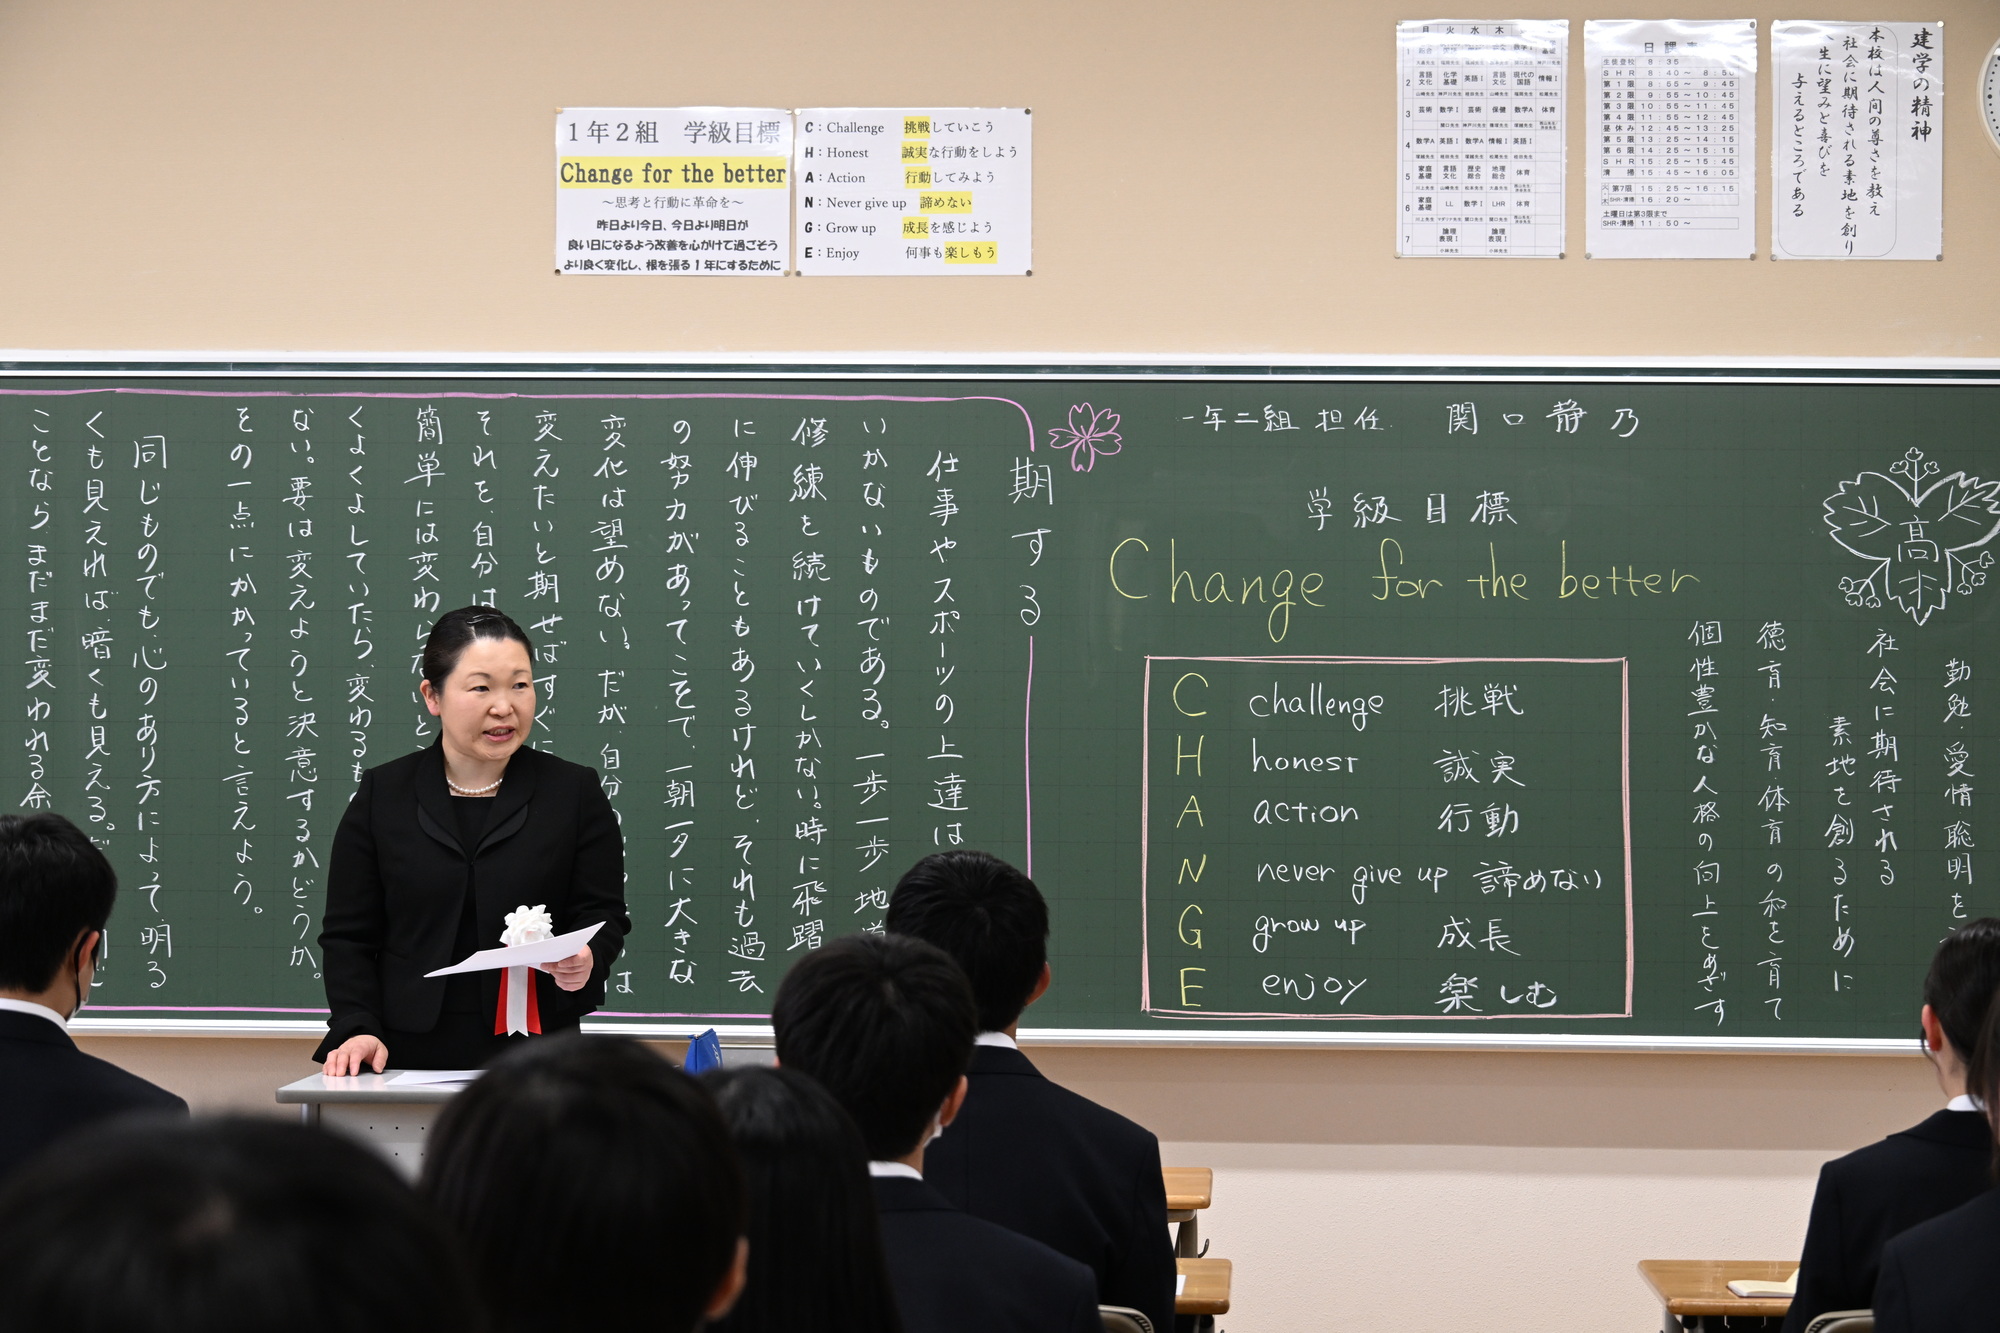 1年2組　学級目標
Change for the better
～思考と行動に革命を～
昨日より今日、今日より明日が
良い日になるよう改善を心がけて過ごそう
より良く変化し、根を張る1年にするために
C：Challenge　挑戦していこう
H：Honest　誠実な行動をしよう
A：Action　行動してみよう
N：Never give up　諦めない
G：Grow up　成長を感じよう
E：Enjoy　何事も楽しもう
月 火 水 木
日課表
生徒登校 8:35
SHR 8:40～8:50
第1限 8:55～9:45
第2限 9:55～10:45
第3限 10:55～11:45
第4限 11:55～12:45
昼休み 12:45～13:25
第5限 13:25～14:15
第6限 14:25～15:15
SHR 15:15～15:45
清掃 15:45～16:05
第7限 15:25～16:15
SHR・清掃 16:20～
土曜日は第3限まで
SHR・清掃 11:50～
建学の精神
本校は人間の尊さを教え
社会に期待される素地を創り
人生に望みと喜びを
与えるところである
一年二組 担任　関口静乃
学級目標
Change for the better
C challenge 挑戦
H honest 誠実
A action 行動
N never give up 諦めない
G grow up 成長
E enjoy 楽しむ
高木
勤勉・愛情 聡明を
社会に期待される
素地を創るために
徳育・知育・体育の和を育て
個性豊かな人格の向上をめざす
期する
仕事やスポーツの上達は
いかないものである。一歩一歩 地道
修練を続けていくしかない。時に飛躍
に伸びることもあるけれど、それも過去
の努力があってこそで、一朝一夕に大きな
変化は望めない。だが、自分の
変えたいと期せばすぐに
それを、自分は
簡単には変わらないと
くよくよしていたら、変わるも
ない。要は変えようと決意するかどうか。
その一点にかかっていると言えよう。
同じものでも、心のあり方によって、明る
くも見えれば、暗くも見える。
ことなら、まだまだ変われる余